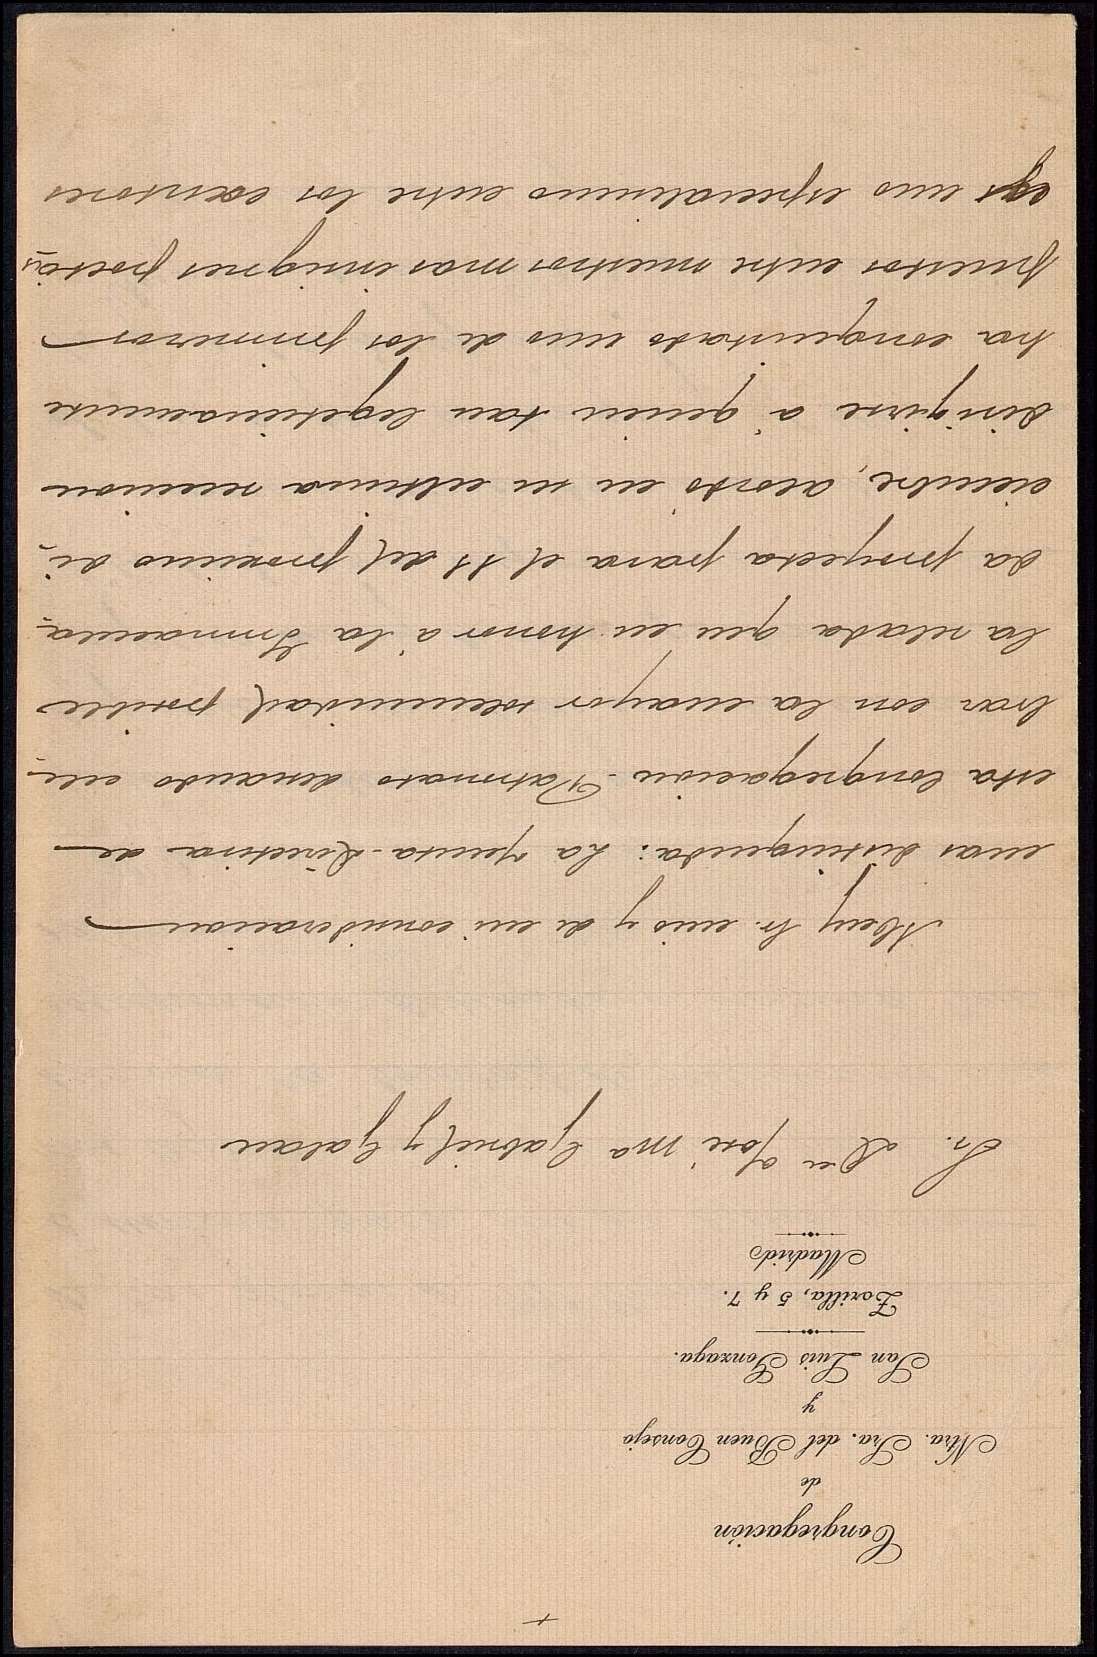 +
Congregación
de
Ntra. Sra. del Buen Consejo
y
San Luis Gonzaga.
Zorilla, 5 y 7.
Madrid
Sr. Dn José Mª Gabriel y Galan
Muy Sr. mio y de mi consideracion
mas distinguida: La Junta-Directiva de
esta Congregacion-Patronato deseando cele-
brar con la mayor solemnidad posible
la velada que en honor á la Inmacula-
da proyecta para el 11 del proximo di-
ciembre, acordó en su ultima reunion
dirigirse á quien tan legitimamente
ha conquistado uno de los primeros
puestos entre nuestros mas insignes poetas
y uno especialisimo entre los cantores